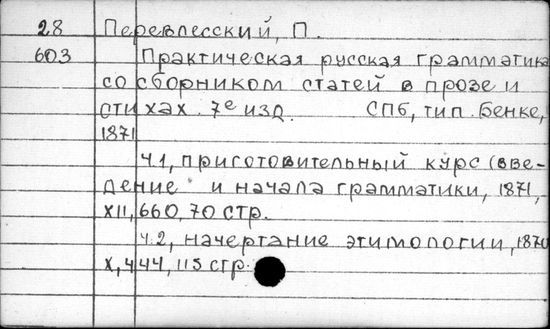 28 Перевлесский, П.
603 Практическая русская грамматика
со сборником статей в прозе и
стихах. 7е изд. СПб, тип. Бенке,
1871
ч.1, приготовительный курс (вве-
дение" и начала грамматики, 1871,
XII, 660, 70 стр.
ч.2, начертание этимологии, 1870
X, 444, 115 стр.